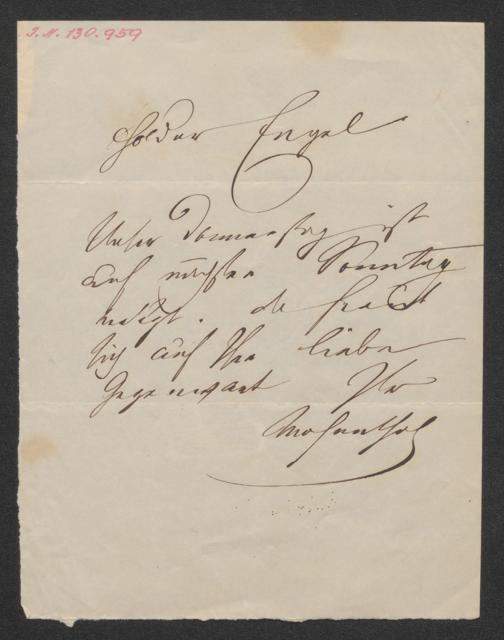 J.N. 130.959
Holder Engel
Unser Donnerstag ist
auf nächsten Sonntag
verlegt. da freut
sich auf Ihre liebe
Gegenwart Ihr
Mosenthal